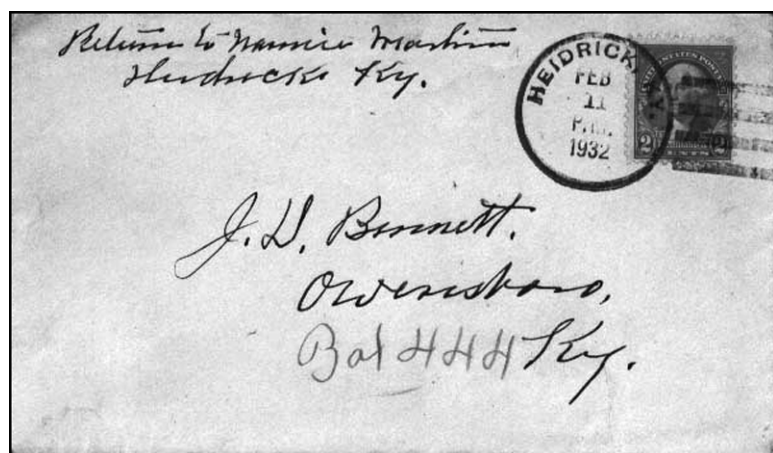 Return to Nannie Martin
Heidrick Ky.
HEIDRICK, KY.
FEB
11
P.M.
1932
UNITED STATES POSTAGE
2 CENTS 2
J. D. Bennett.
Owensboro,
Box 444 Ky.